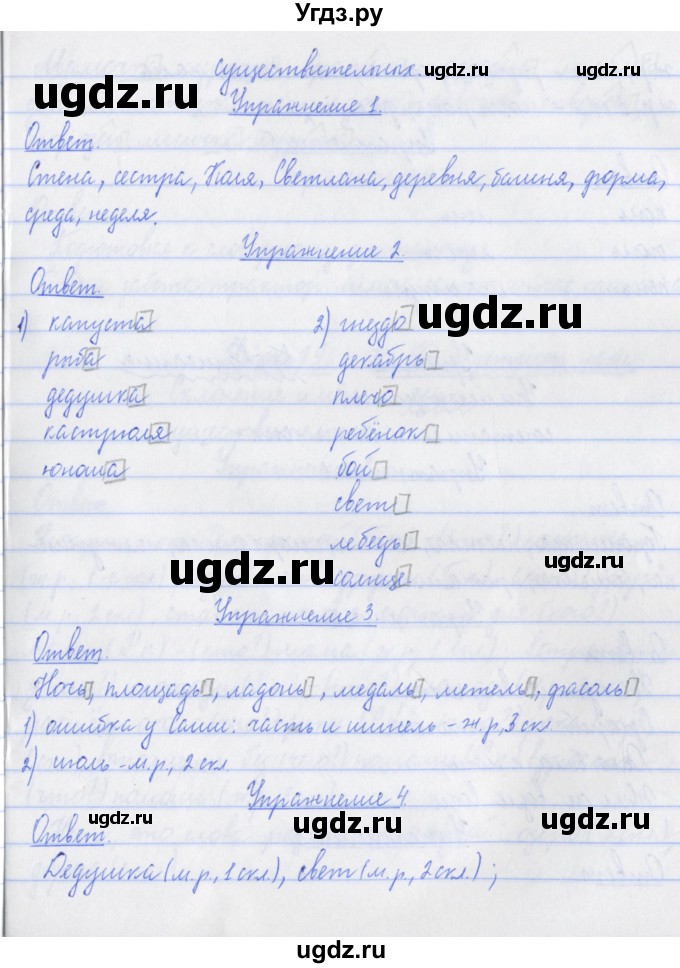 Угдз.ру
существительных.
Упражнение 1.
Ответ.
Стена, сестра, Коля, Светлана, деревня, башня, форма,
среда, неделя.
Упражнение 2.
Ответ.
1) капуста
рыба
дедушка
кастрюля
юноша
2) гнездо
декабрь
плечо
ребёнок
бой
свет
лебедь
солнце
Упражнение 3.
Ответ.
Ночь, площадь, ладонь, медаль, метель, фасоль
1) ошибка у Саши: часть и шинель - ж.р, 3 скл
2) июль - м.р., 2 скл.
Упражнение 4.
Ответ.
Дедушка (м.р., 1 скл.), свет (м.р., 2 скл.) ;
ugdz.ru
ugdz.ru
ugdz.ru
ugdz.ru
ugdz.ru
ugdz.ru
ugdz.ru
ugdz.ru
ugdz.ru
ugdz.ru